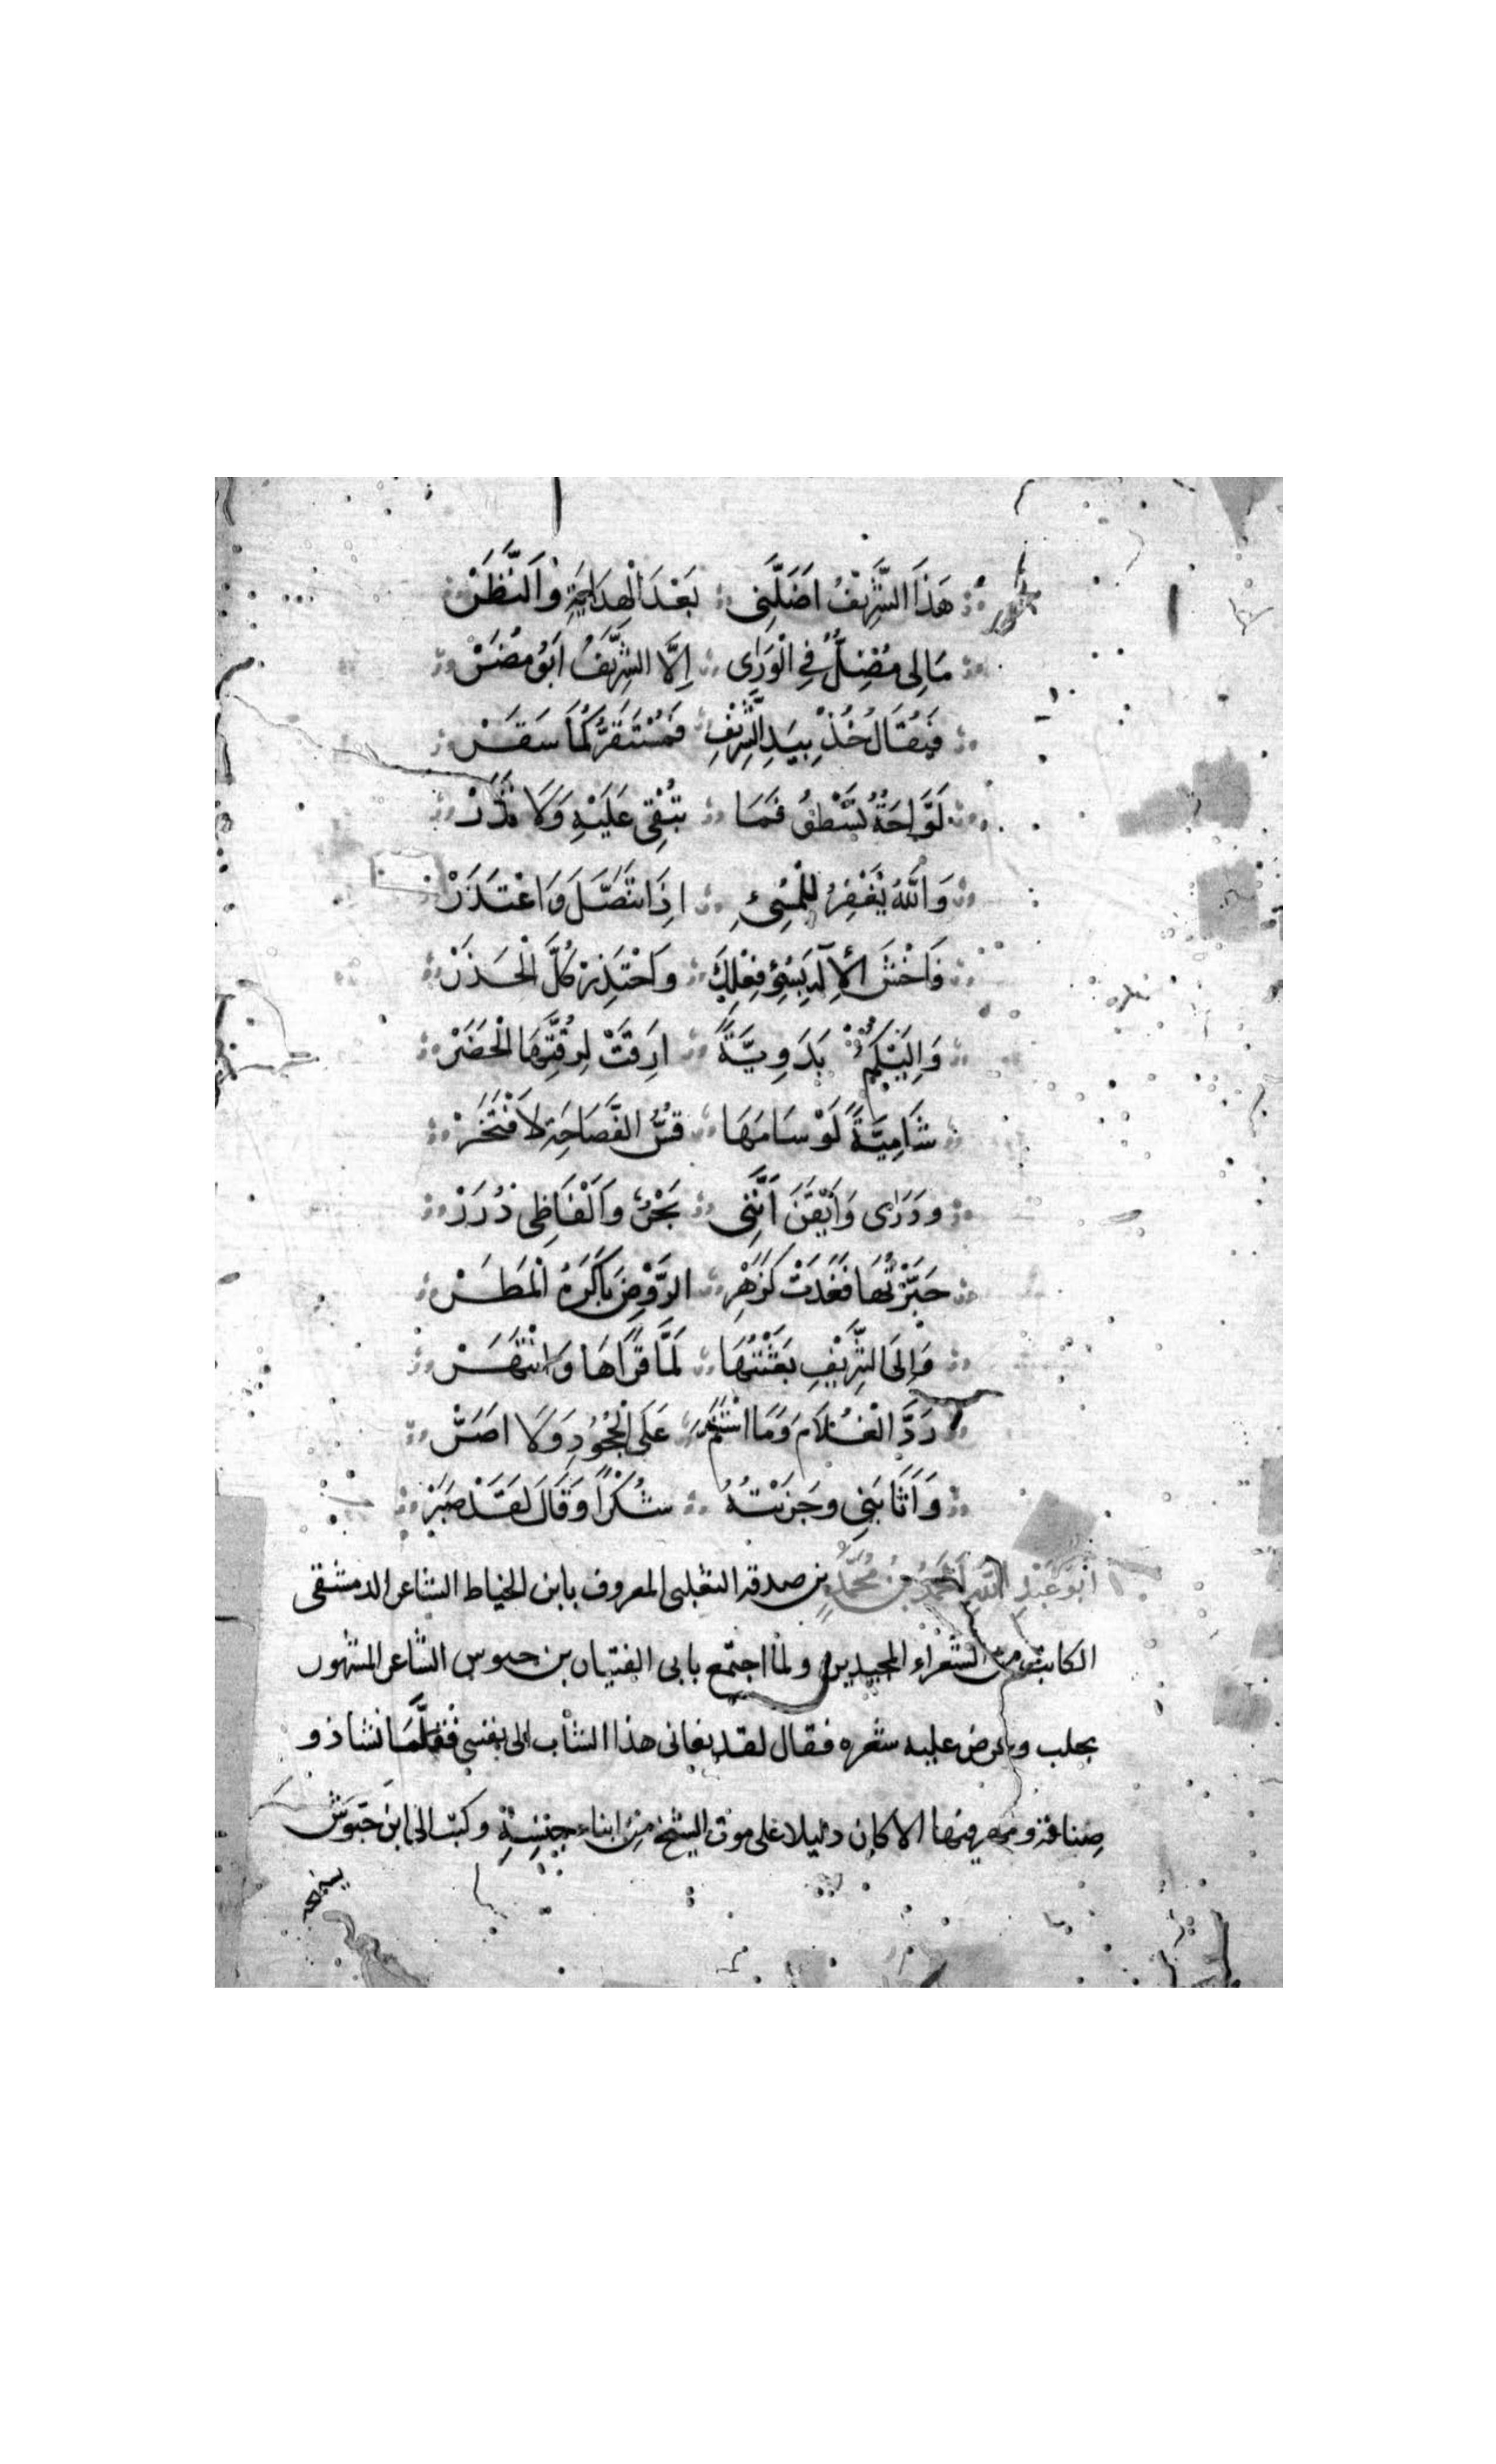 هَذَا الشَّرِيْفُ اَضَلَّنِى بَعْدَ الْهِدَايَةِ وَالنَّظَرْ
مَالِى مُضِلٌّ فِى الْوَرَاى اِلَّا الشَّرِيْفُ اَبُو مُضَرْ
فَيُقَالُ خُذْ بِيَدِ الشَّرِيْفِ فَمُسْتَقَرُّكُمَا سَقَرْ
لَوَّاحَةٌ تَسْطُوْ فَمَا تُبْقِى عَلَيْهِ وَلَا تَذَرْ
وَاللّٰهُ يَغْفِرُ لِلْمُسِىءِ اِذَا تَنَصَّلَ وَاعْتَذَرْ
فَاخْشَ الْاِلٰهَ بِسُوْءِ فِعْلِكَ وَاحْتَذِرْ كُلَّ الْحَذَرْ
وَاِلَيْكُمُ بَدَوِيَّةً رَقَّتْ لِرِقَّتِهَا الْحَضَرْ
شَامِيَّةً لَوْ سَامَهَا قُسُّ الْفَصَاحَةِ لَافْتَخَرْ
وَدَرٰى وَاَيْقَنَ اَنَّنِى بَحْرٌ وَاَلْفَاظِى دُرَرْ
حَبَّرْتُهَا فَغَدَتْ كَزَهْرِ الرَّوْضِ بَاكَرَهُ الْمَطَرْ
وَاِلَى الشَّرِيْفِ بَعَثْتُهَا لَمَّا قَرَاهَا وَانْبَهَرْ
رَدَّ الْغُلَامَ وَمَا اسْتَمَرَّ عَلَى الْجُحُوْدِ وَلَا اَصَرّْ
وَاَثَابَنِى وَجَزَيْتُهُ شُكْرًا وَقَالَ لَقَدْ صَبَرْ
اَبُو عَبْدِ اللّٰهِ اَحْمَدُ بْنُ مُحَمَّدِ بن صدقه التغلبى المعروف بابن الخياط الشاعر الدمشقى
الكاتب من الشعراء المجيدين ولما اجتمع بابى الفتيان بن حيوس الشاعر المشهور
بحلب وعرض عليه شعره فقال لقد نعانى هذا الشاب الى نفسى فقلما نشا ذو
صناعة ومهر فيها الا كان دليلا على موت الشيخ من ابناء جنسه وكتب الى ابن حيوس